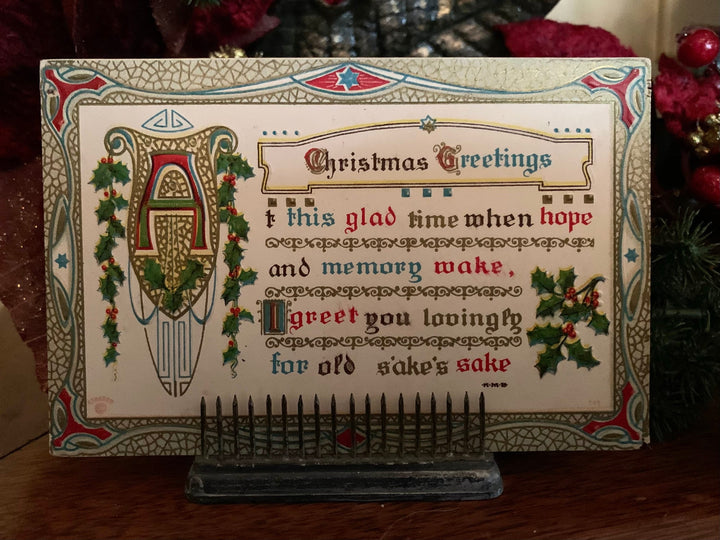 Christmas Greetings
At this glad time when hope
and memory wake,
I greet you lovingly
for old sake's sake
H·M·B